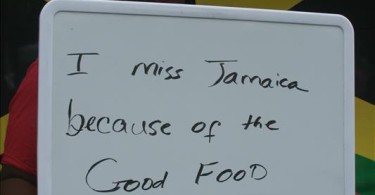 I miss Jamaica
because of the
Good FOOD